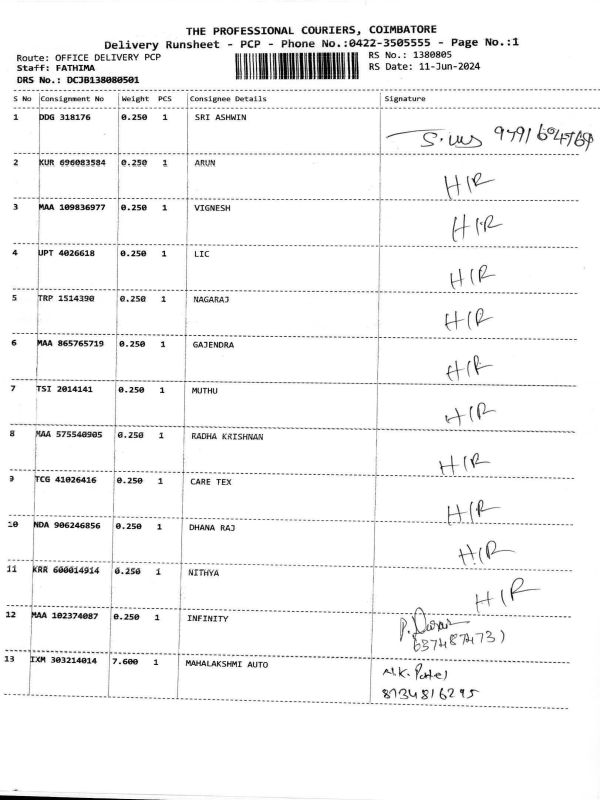 THE PROFESSIONAL COURIERS, COIMBATORE
Delivery Runsheet - PCP - Phone No.:0422-3505555 - Page No.:1
Route: OFFICE DELIVERY PCP RS No.: 1380805
Staff: FATHIMA RS Date: 11-Jun-2024
DRS No.: DCJB138080501
S No Consignment No Weight PCS Consignee Details Signature
1 DDG 318176 0.250 1 SRI ASHWIN
2 KUR 696083584 0.250 1 ARUN H/R
3 MAA 109836977 0.250 1 VIGNESH H/R
4 UPT 4026618 0.250 1 LIC H/R
5 TRP 1514390 0.250 1 NAGARAJ H/R
6 MAA 865765719 0.250 1 GAJENDRA H/R
7 TSI 2014141 0.250 1 MUTHU H/R
8 MAA 575540905 0.250 1 RADHA KRISHNAN H/R
9 TCG 41026416 0.250 1 CARE TEX H/R
10 NDA 906246856 0.250 1 DHANA RAJ H/R
11 KRR 600014914 0.250 1 NITHYA H/R
12 MAA 102374087 0.250 1 INFINITY P.
6374874731
13 IXM 303214014 7.600 1 MAHALAKSHMI AUTO M.K. Patel
8734816295